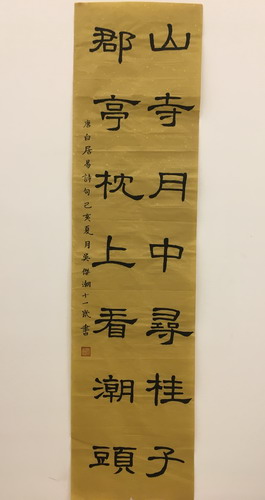 山寺月中尋桂子
郡亭枕上看潮頭
唐白居易詩句己亥夏月吳傑潮十一歲書